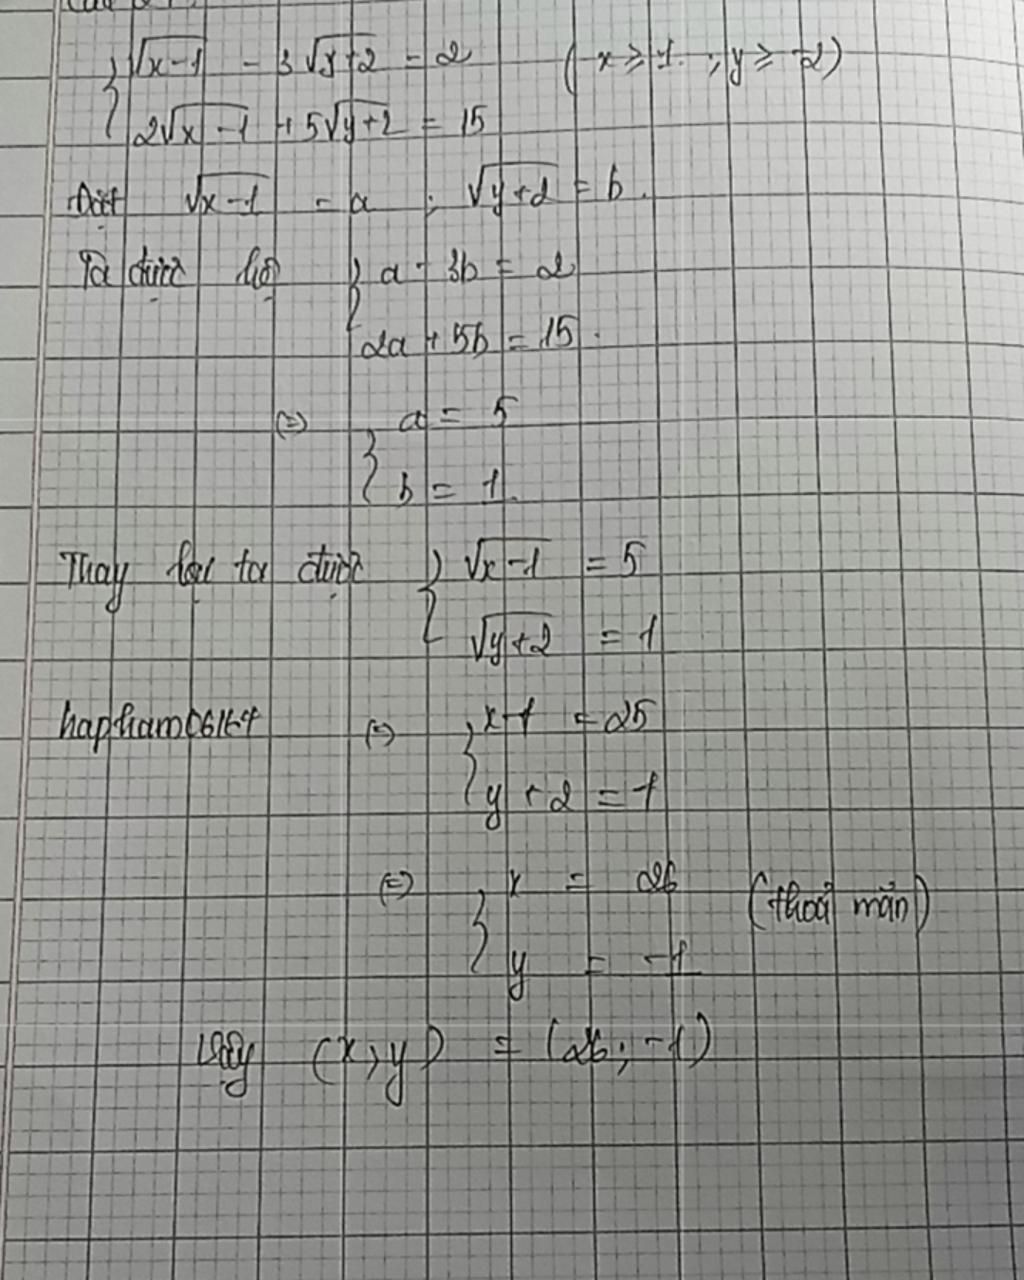 { √x-1 - 3√y+2 = 2 (x ≥ 1 ; y ≥ -2)
2√x-1 + 5√y+2 = 15
Đặt √x-1 = a ; √y+2 = b.
Ta được hệ { a - 3b = 2
2a + 5b = 15.
(=) { a = 5
b = 1.
Thay lại ta được { √x-1 = 5
√y+2 = 1
hapham06164 (=) { x-1 = 25
y + 2 = 1
(=) { x = 26 (thoả mãn)
y = -1
Vậy (x;y) = (26; -1)